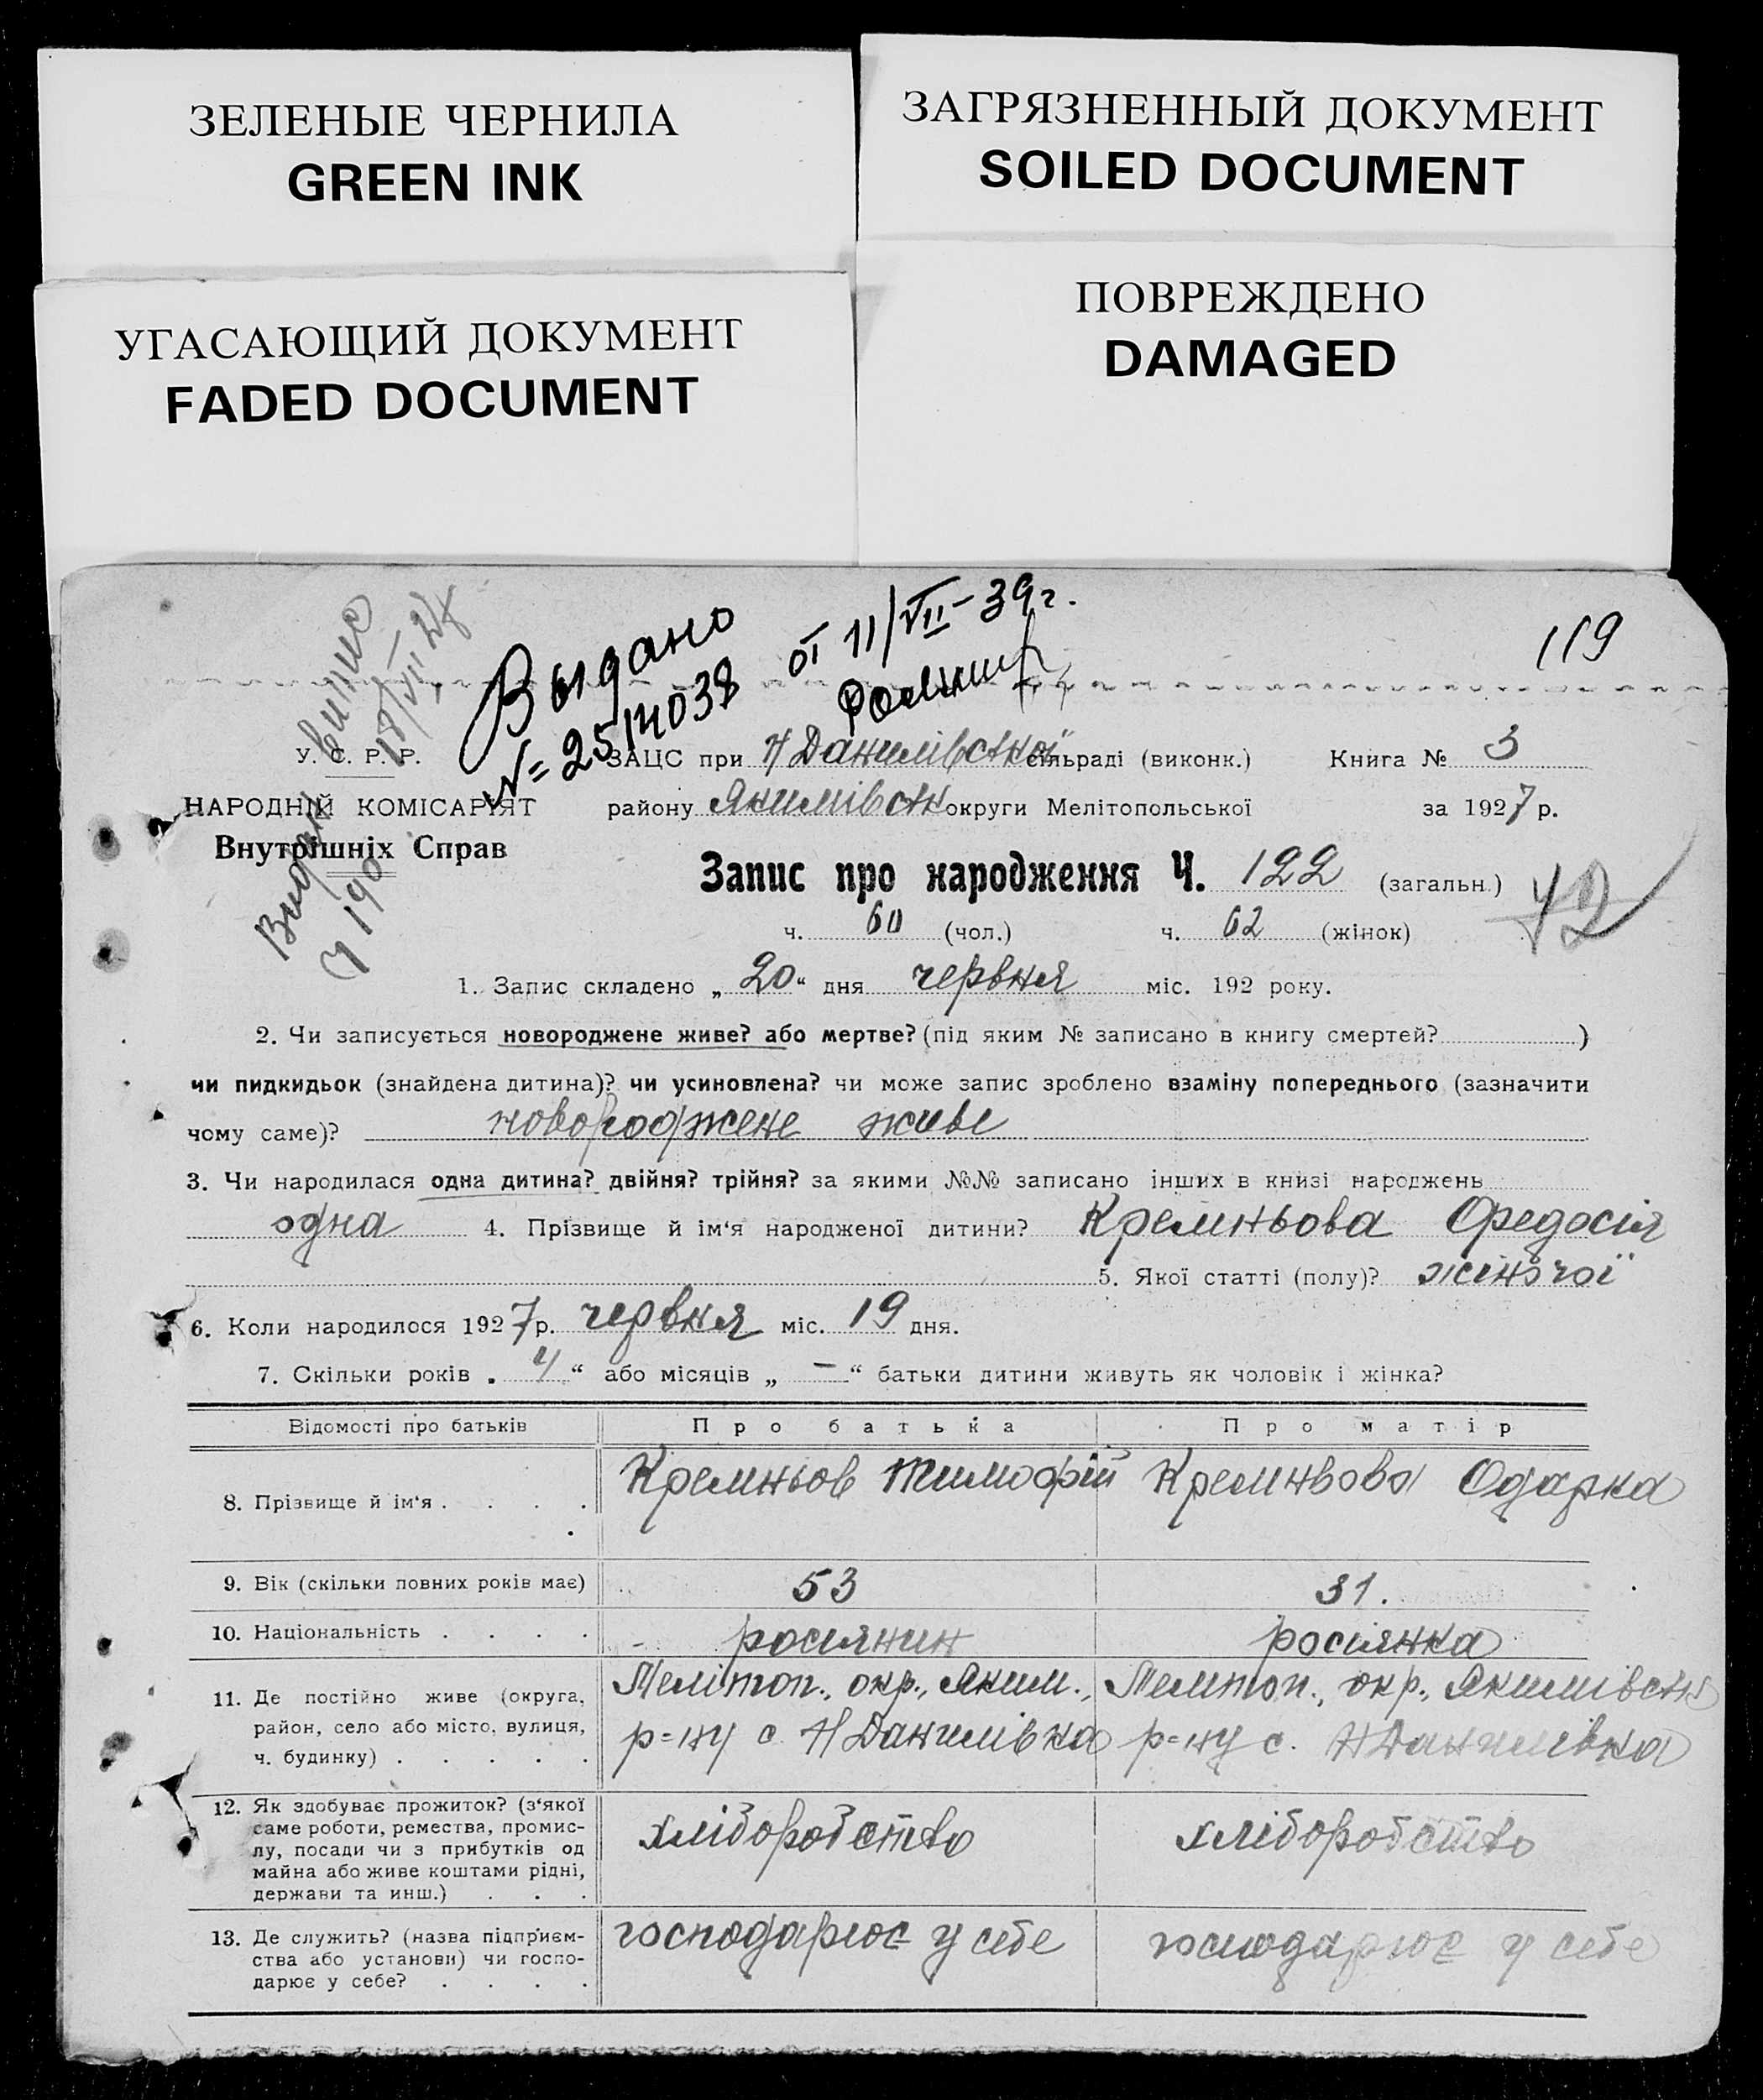 ЗЕЛЕНЫЕ ЧЕРНИЛА
GREEN INK
ЗАГРЯЗНЕННЫЙ ДОКУМЕНТ
SOILED DOCUMENT
УГАСАЮЩИЙ ДОКУМЕНТ
FADED DOCUMENT
ПОВРЕЖДЕНО
DAMAGED
119
Выдано
№ 2514038
от 11/VII-39 г.
Видан випис
18/VII 27
Ч 190
У. С. Р. Р.
НАРОДНІЙ КОМІСАРІЯТ
Внутрішніх Справ
ЗАЦС при Н Данилівської сільраді (виконк.) Книга № 3
району Якимівськ округи Мелітопольської за 1927 р.
Запис про народження Ч. 122 (загальн.)
ч. 60 (чол.) ч. 62 (жінок)
42
1. Запис складено „ 20 “ дня червня міс. 192 року.
2. Чи записується новороджене живе? або мертве? (під яким № записано в книгу смертей? )
чи пидкидьок (знайдена дитина)? чи усиновлена? чи може запис зроблено взаміну попереднього (зазначити
чому саме)? новороджене живе
3. Чи народилася одна дитина? двійня? трійня? за якими №№ записано інших в книзі народжень
одна 4. Прізвище й ім‘я народженої дитини? Кремньова Федосія
5. Якої статті (полу)? жіночої
6. Коли народилося 1927 р. червня міс. 19 дня.
7. Скільки років „ 4 “ або місяців „ — “ батьки дитини живуть як чоловік і жінка?
Відомості про батьків Про батька Про матір
8. Прізвище й ім‘я . . . . Кремньов Тимофій Кремньова Одарка
9. Вік (скільки повних років має) 53 31.
10. Національність . . . . росіянин росіянка
11. Де постійно живе (округа,
район, село або місто, вулиця,
ч. будинку) . . . . .
Меліпоп., окр., Яким.,
р=ну с. Н Данилівка
Меліпоп., окр., Якимівськ
р=ну с. Н Данилівка
12. Як здобуває прожиток? (з‘якої
саме роботи, ремества, промис-
лу, посади чи з прибутків од
майна або живе коштами рідні,
держави та инш.) . . .
хліборобство хліборобство
13. Де служить? (назва підприєм-
ства або установи) чи госпо-
дарює у себе? . . . .
господарює у себе господарює у себе